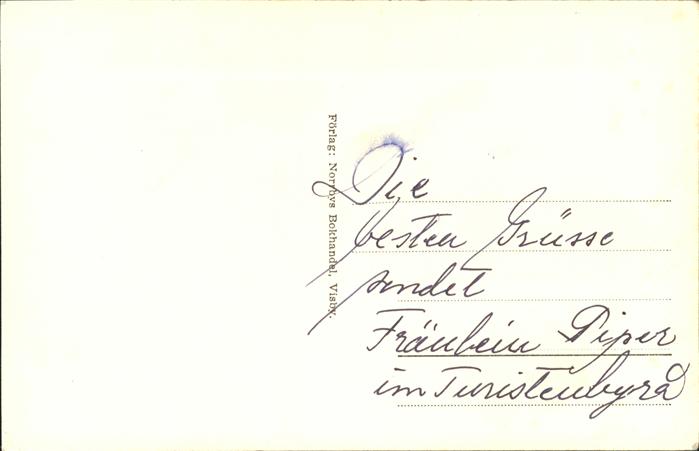 Förlag: Norrbys Bokhandel, Visby.
Die
besten Grüsse
sendet
Fräulein Piper
im Turistenbyrå